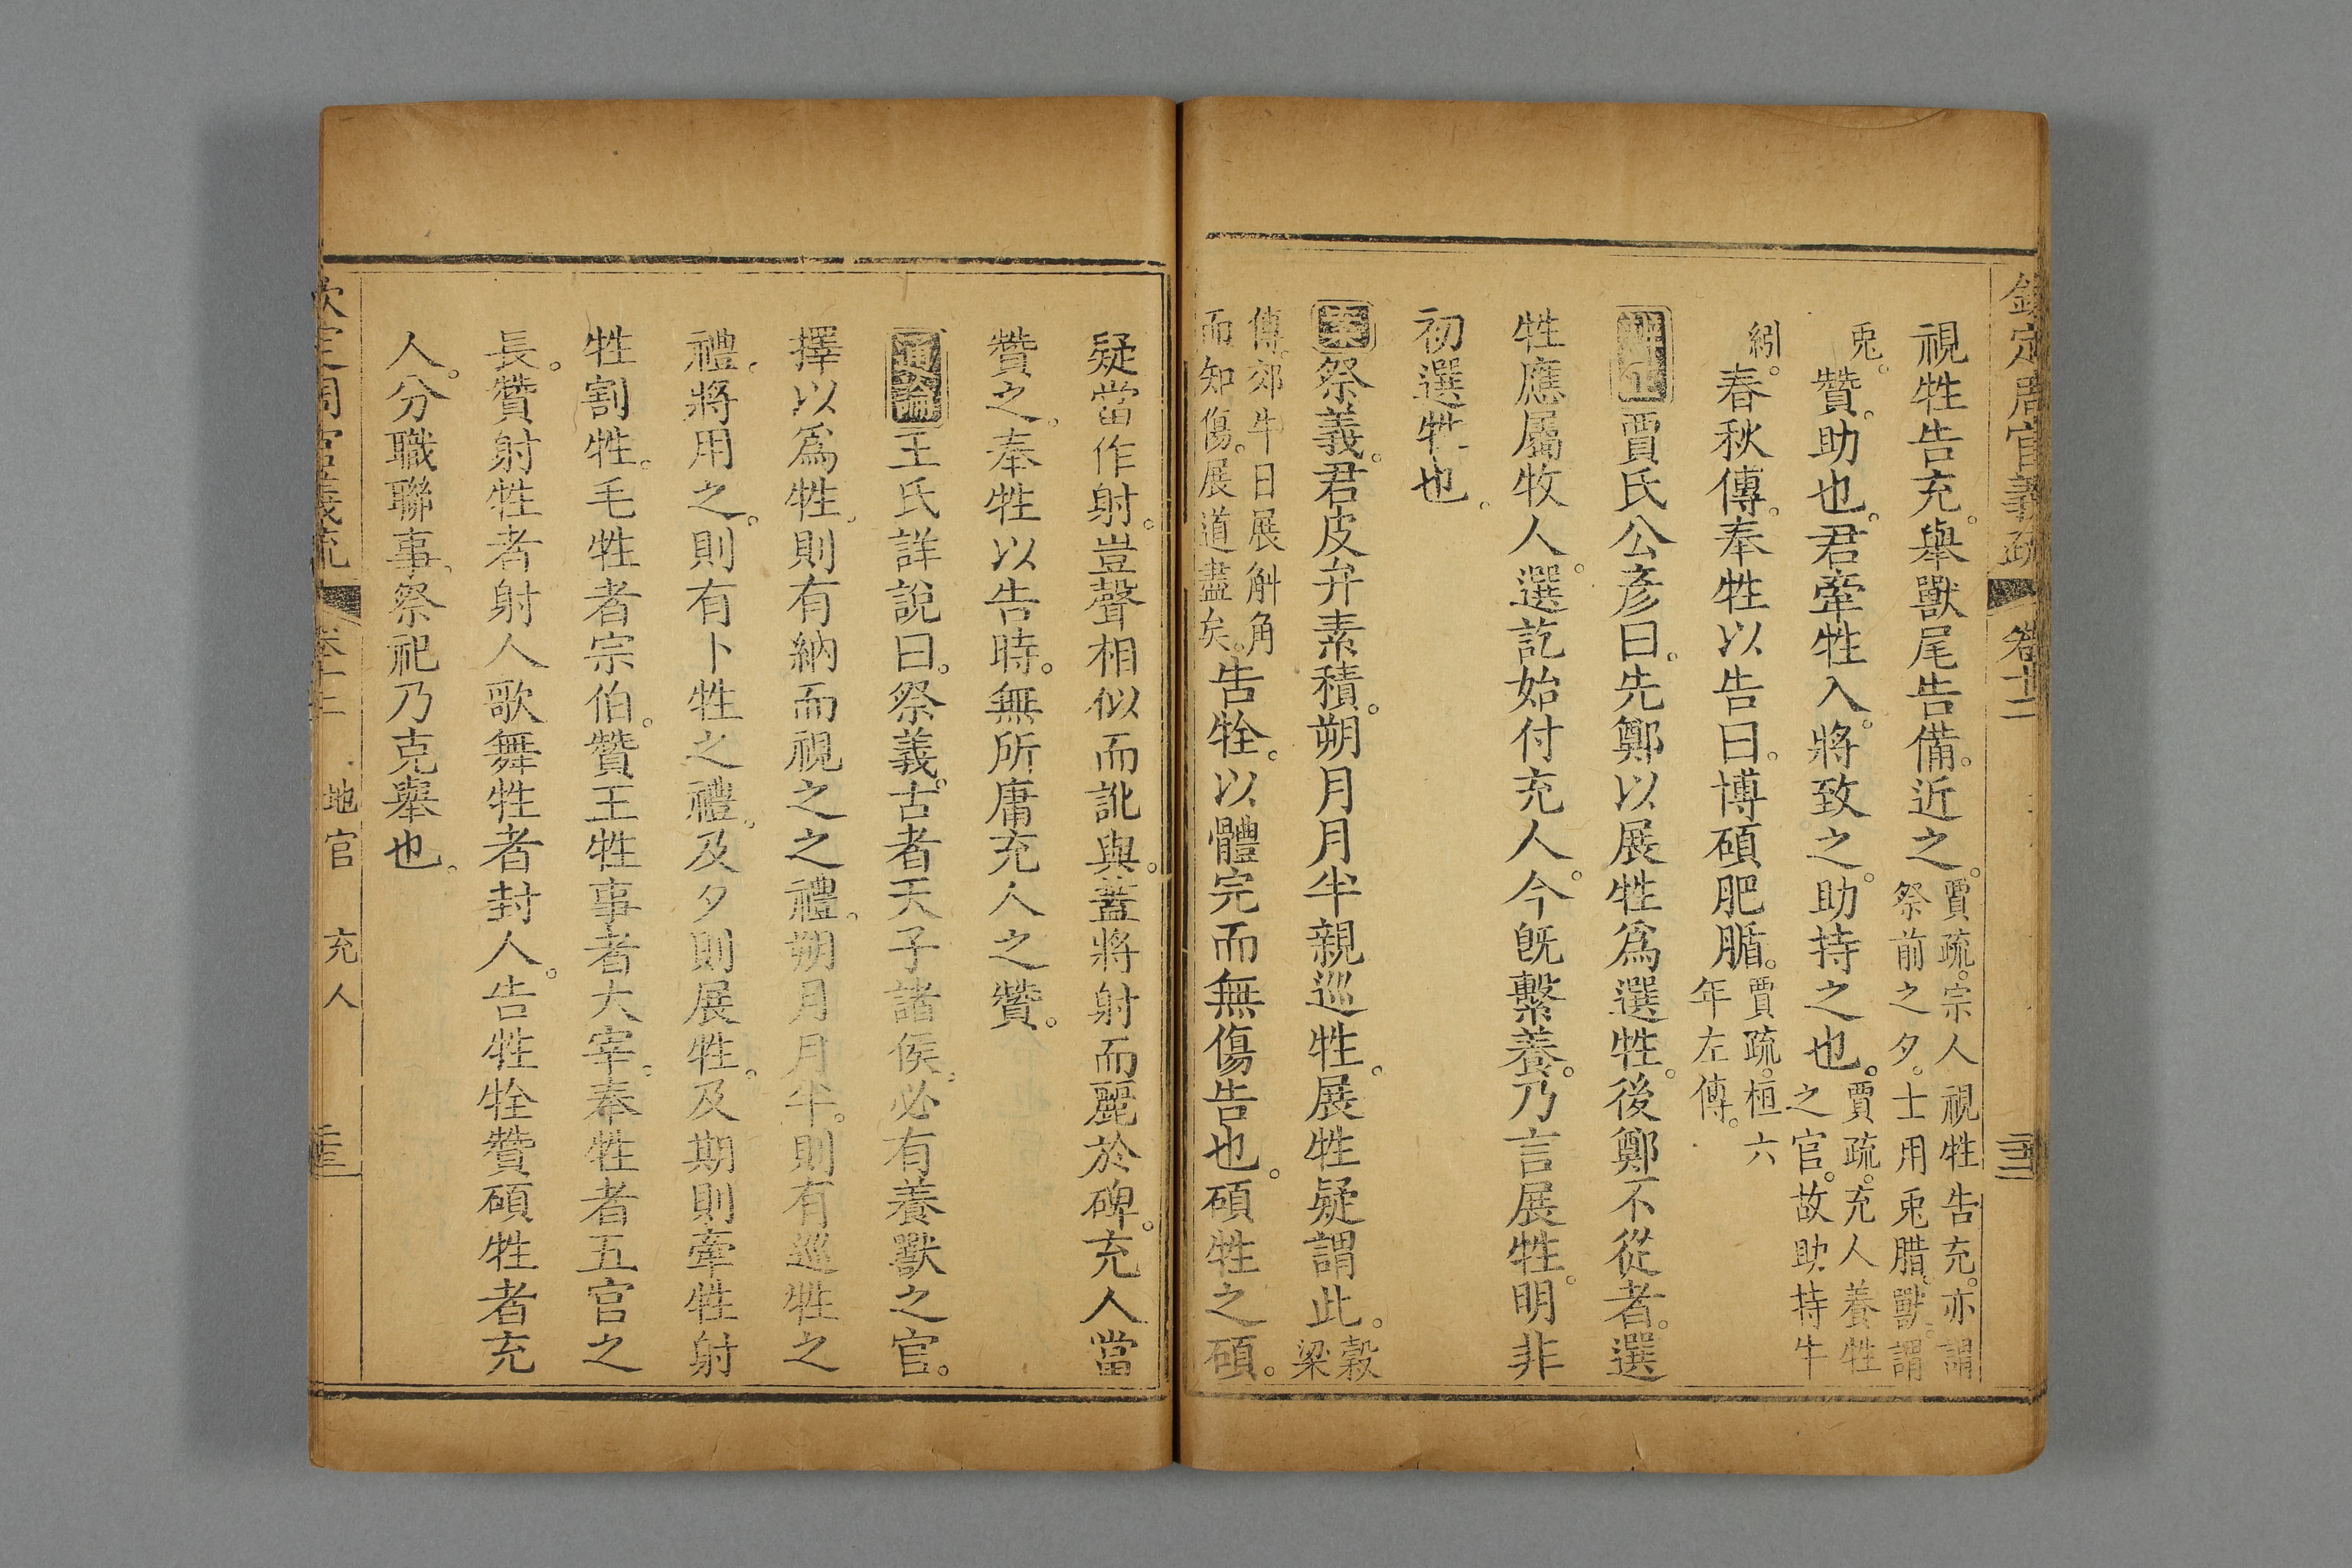 欽定周官義疏 卷十二 三三
視牲告充。舉獸尾告備。近之。賈疏。宗人視牲告充。亦謂祭前之夕。士用兎腊。獸。謂
兎。贊。助也。君牽牲入。將致之。助持之也。賈疏。充人養牲之官。故助持牛
紖。春秋傳。奉牲以告曰。博碩肥腯。賈疏。桓六年左傳。
辨正賈氏公彥曰。先鄭以展牲爲選牲。後鄭不從者。選
牲應屬牧人。選訖始付充人。今既繫養。乃言展牲。明非
初選牲也。
案祭義。君皮弁素積。朔月月半親巡牲。展牲疑謂此。穀梁
傳。郊牛日展斛角而知傷。展道盡矣。告牷。以體完而無傷告也。碩牲之碩。
疑當作射。豈聲相似而訛與。蓋將射而麗於碑。充人當
贊之。奉牲以告時。無所庸充人之贊。
通論王氏詳說曰。祭義。古者天子諸侯。必有養獸之官。
擇以爲牲。則有納而視之之禮。朔月月半。則有巡牲之
禮。將用之。則有卜牲之禮。及夕則展牲。及期則牽牲射
牲割牲。毛牲者宗伯。贊王牲事者大宰。奉牲者五官之
長。贊射牲者射人歌舞牲者封人。告牲牷贊碩牲者充
人。分職聯事。祭祀乃克舉也。
欽定周官義疏 卷十二 地官 充人 三三